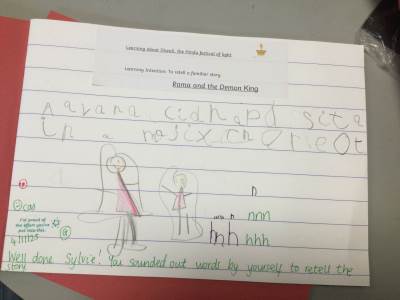 Learning about Diwali, the Hindu festival of light
Learning Intention: To retell a familiar story.
Rama and the Demon King
Ravana cidnapd sita
in a magix chorieot
n
with n
nnn
hh hhh
cas
I'm proud of
the effort you've
put into this.
4/11/25
Well done Sylvie! You sounded out words by yourself to retell the
story